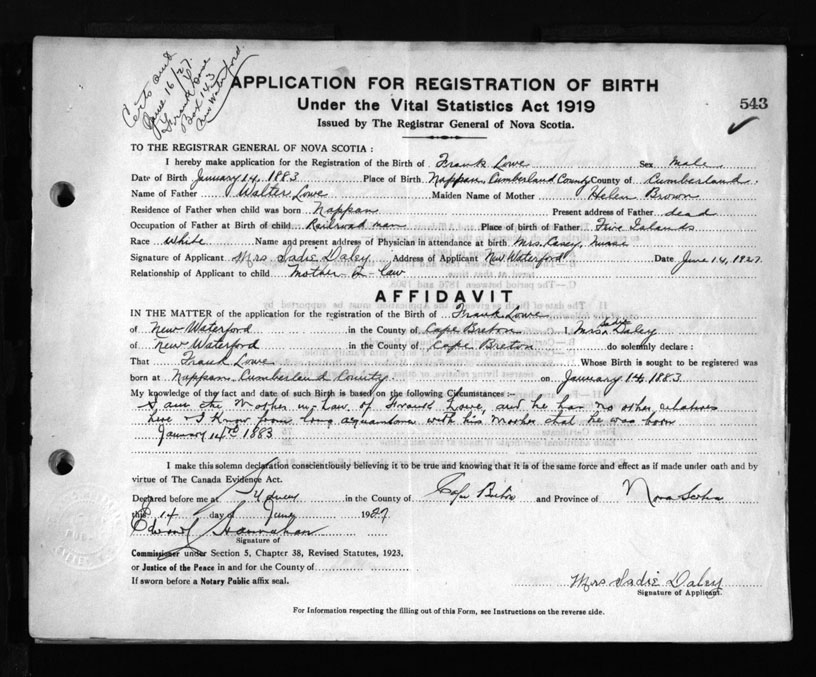 Certs sent
June 16/27
Frank Lowe
Box 143
New Waterford.
APPLICATION FOR REGISTRATION OF BIRTH
Under the Vital Statistics Act 1919
543
Issued by The Registrar General of Nova Scotia.
TO THE REGISTRAR GENERAL OF NOVA SCOTIA :
I hereby make application for the Registration of the Birth of Frank Lowe Sex male
Date of Birth January 14, 1883 Place of Birth Nappan, Cumberland County County of Cumberland
Name of Father Walter Lowe Maiden Name of Mother Helen Brown
Residence of Father when child was born Nappan Present address of Father dead
Occupation of Father at Birth of child Railroad man Place of birth of Father Five Islands
Race White Name and present address of Physician in attendance at birth Mrs. Casey, nurse
Signature of Applicant Mrs Sadie Daley Address of Applicant New Waterford Date June 14, 1927.
Relationship of Applicant to child Mother-in-law
AFFIDAVIT
IN THE MATTER of the application for the registration of the Birth of Frank Lowe
of New Waterford in the County of Cape Breton I Mrs. Sadie Daley
of New Waterford in the County of Cape Breton do solemnly declare :
That Frank Lowe Whose Birth is sought to be registered was
born at Nappan, Cumberland County on January 14, 1883.
My knowledge of the fact and date of such Birth is based on the following Circumstances :-
I am the Mother in-law of Frank Lowe, and he has no other relatives
here & I know from long acquaintance with his Mother that he was born
January 14th 1883
I make this solemn declaration conscientiously believing it to be true and knowing that it is of the same force and effect as if made under oath and by
virtue of The Canada Evidence Act.
Declared before me at in the County of Cape Breton and Province of Nova Scotia
this 14 day of June 1927
Edward Hannahan
Signature of
Commissioner under Section 5, Chapter 38, Revised Statutes, 1923.
or Justice of the Peace in and for the County of
If sworn before a Notary Public affix seal.
Mrs Sadie Daley
Signature of Applicant.
For Information respecting the filling out of this Form, see Instructions on the reverse side.